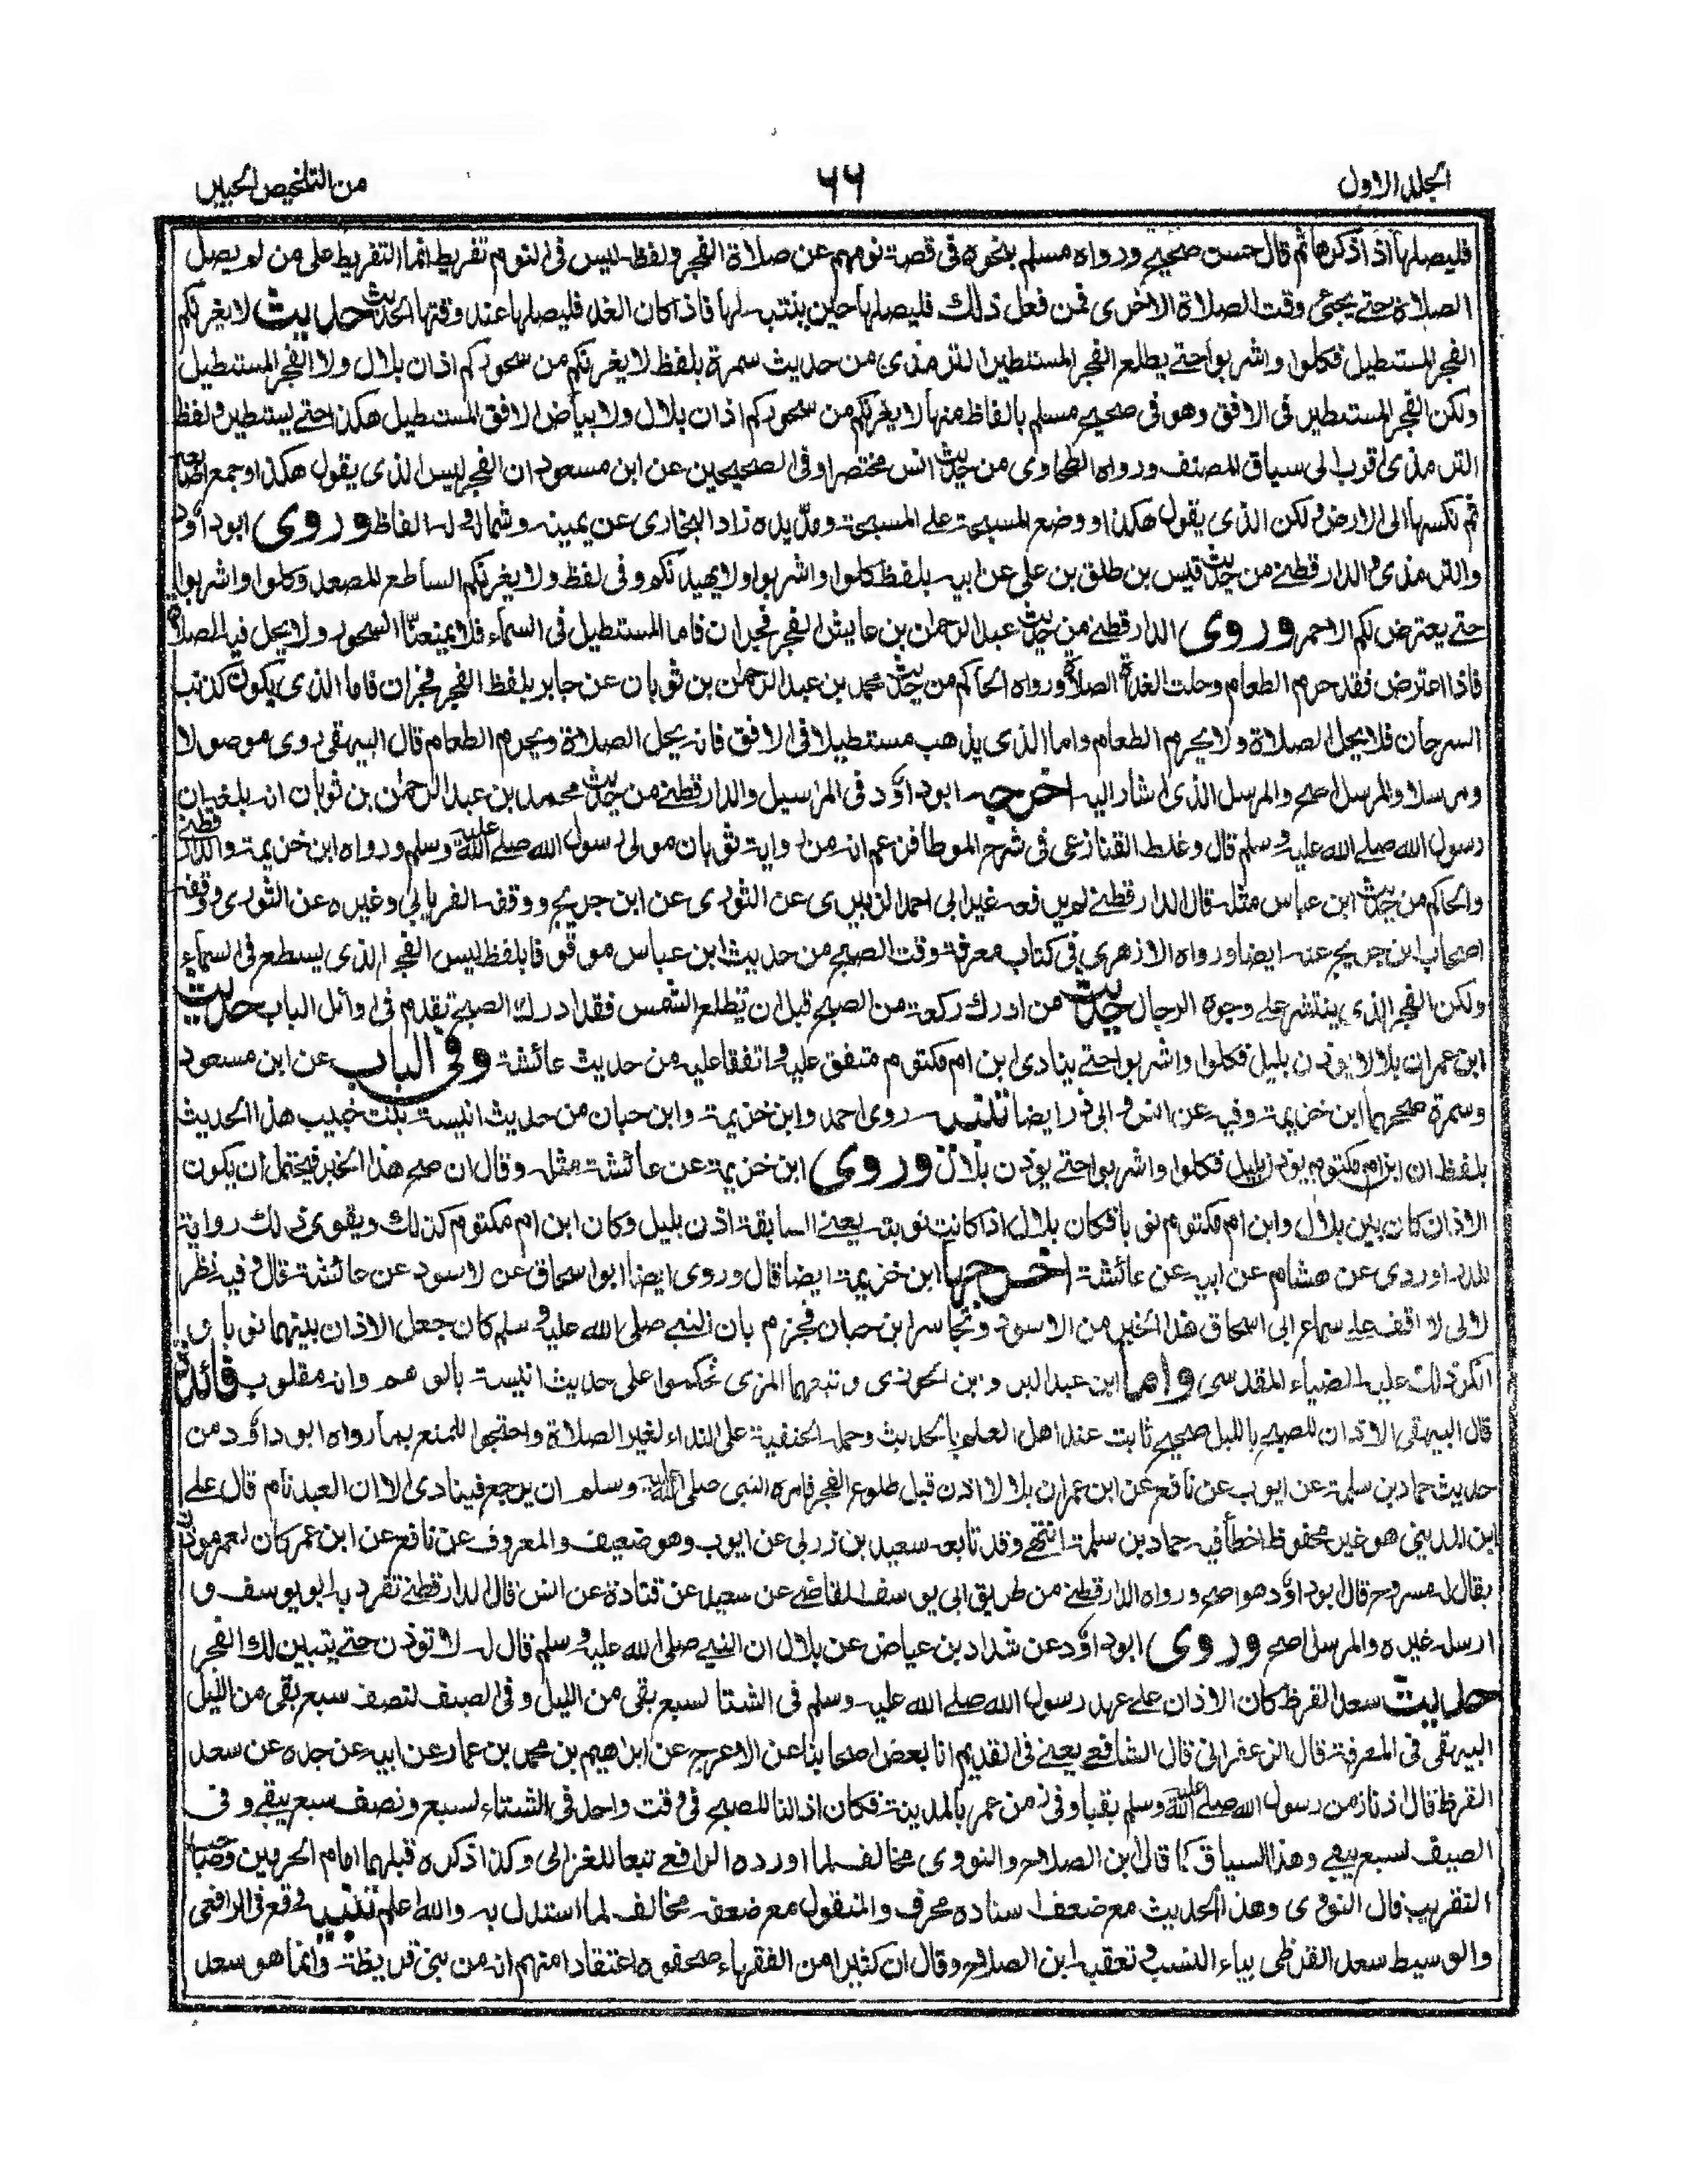 الجلد الاول
٦٦
من التلخيص الحبير
فليصلها اذا ذكرها ثم قال حسن صحيح ورواه مسلم بنحوه فى قصة نومهم عن صلاة الفجر ولفظه ليس فى النوم تفريط انما التفريط على من لم يصل
الصلاة حتى يجئ وقت الصلاة الاخرى فمن فعل ذلك فليصلها حين ينتبه لها فاذا كان الغد فليصلها عند وقتها الحديث حديث لا يغرنكم
الفجر المستطيل فكلوا واشربوا حتى يطلع الفجر المستطير الترمذى من حديث سمرة بلفظ لا يغرنكم من سحوركم اذان بلال ولا الفجر المستطيل
ولكن الفجر المستطير فى الافق وهو فى صحيح مسلم بالفاظ منها لا يغرنكم من سحوركم اذان بلال ولا بياض الافق المستطيل هكذا حتى يستطير ولفظ
الترمذى اقرب الى سياق المصنف ورواه الطحاوى من حديث انس مختصرا وفى الصحيحين عن ابن مسعود ان الفجر ليس الذى يقول هكذا وجمع اصابعه
ثم نكسها الى الارض ولكن الذى يقول هكذا ووضع المسبحة على المسبحة ومد يده زاد البخارى عن يمينه وشماله وله الفاظ وروى ابو داؤد
والترمذى والدارقطنى من حديث قيس بن طلق بن على عن ابيه بلفظ كلوا واشربوا ولا يهيدنكم وفى لفظ ولا يغرنكم الساطع المصعد وكلوا واشربوا
حتى يعترض لكم الاحمر وروى الدارقطنى من حديث عبد الرحمن بن عايش الفجر فجران فاما المستطيل فى السماء فلا يمنعنّ السحور ولا يحل فيه الصلاة
فاذا اعترض فقد حرم الطعام وحلت الغداة الصلاة ورواه الحاكم من حديث محمد بن عبد الرحمن بن ثوبان عن جابر بلفظ الفجر فجران فاما الذى يكون كذنب
السرحان فلا يحل الصلاة ولا يحرم الطعام واما الذى يذهب مستطيلا فى الافق فانه يحل الصلاة ويحرم الطعام قال البيهقى روى موصولا
ومرسلا والمرسل اصح والمرسل الذى اشار اليه اخرجه ابو داؤد فى المراسيل والدارقطنى من حديث محمد بن عبد الرحمن بن ثوبان انه بلغه ان
رسول الله صلى الله عليه وسلم قال وغلط القنازعى فى شرح الموطأ فزعم انه من رواية ثوبان مولى رسول الله صلى الله عليه وسلم ورواه ابن خزيمة والدارقطنى
والحاكم من حديث ابن عباس مثله قال الدارقطنى لم يرفعه غير ابى احمد الزبيرى عن الثورى عن ابن جريج ووقفه الفريابى وغيره عن الثورى ووقفه
اصحاب ابن جريج عنه ايضا ورواه الازهرى فى كتاب معرفة وقت الصبح من حديث ابن عباس موقوفا بلفظ ليس الفجر الذى يسطع فى السماء
ولكن الفجر الذى ينتشر على وجوه الرجال حديث من ادرك ركعة من الصبح قبل ان تطلع الشمس فقد ادرك الصبح تقدم فى اوائل الباب حديث
ابن عمر ان بلالا يؤذن بليل فكلوا واشربوا حتى ينادى ابن ام مكتوم متفق عليه واتفقا عليه من حديث عائشة وفى الباب عن ابن مسعود
وسمرة صححهما ابن خزيمة وفيه عن انس وابى ذر ايضا تنبيه روى احمد وابن خزيمة وابن حبان من حديث انيسة بنت خبيب هذا الحديث
بلفظ ان ابن ام مكتوم يؤذن بليل فكلوا واشربوا حتى يؤذن بلال وروى ابن خزيمة عن عائشة مثله وقال ان صح هذا الخبر فيحتمل ان يكون
الاذان كان بين بلال وابن ام مكتوم نوبا فكان بلال اذا كانت نوبته يعنى السابقة اذن بليل وكان ابن ام مكتوم كذلك ويقوى ذلك رواية
الدراوردى عن هشام عن ابيه عن عائشة اخرجها ابن خزيمة ايضا قال وروى ايضا ابو اسحاق عن لاسود عن عائشة قال وفيه نظر
لانى لا اقف على سماع ابى اسحاق هذا الخبر من الاسود وتجاسر ابن حبان فجزم بان النبى صلى الله عليه وسلم كان جعل الاذان بينهما نوبا و
انكر ذلك عليه الضياء المقدسى واما ابن عبد البر وبن الجوزى وتبعهما المزى فحكموا على حديث انيسة بالوهم وانه مقلوب فائدة
قال البيهقى الاذان للصبح بالليل صحيح ثابت عند اهل العلم بالحديث وحمله الحنفية على النداء لغير الصلاة واحتجوا للمنع بما رواه ابو داؤد من
حديث حماد بن سلمة عن ايوب عن نافع عن ابن عمر ان بلالا اذن قبل طلوع الفجر فامره النبى صلى الله عليه وسلم ان يرجع فينادى الا ان العبد نام قال على
ابن المدينى هو غير محفوظ اخطأ فيه حماد بن سلمة انتهى وقد تابعه سعيد بن زربى عن ايوب وهو ضعيف والمعروف عن نافع عن ابن عمر كان لعمر مؤذن
يقال له مسروح قال ابو داؤد هو اصح ورواه الدارقطنى من طريق ابى يوسف القاضى عن سعيد عن قتادة عن انس قال الدارقطنى تفرد به ابو يوسف و
ارسله غيره والمرسل اصح وروى ابو داؤد عن شداد بن عياض عن بلال ان النبى صلى الله عليه وسلم قال له لا تؤذن حتى يتبين لك الفجر
حديث سعد القرظ كان الاذان على عهد رسول الله صلى الله عليه وسلم فى الشتا لسبع بقى من الليل وفى الصيف لنصف سبع بقى من الليل
البيهقى فى المعرفة قال الزعفرانى قال الشافعى يعنى فى القديم انا بعض اصحابنا عن الاعرج عن ابراهيم بن محمد بن عمار عن ابيه عن جده عن سعد
القرظ قال اذنا زمن رسول الله صلى الله عليه وسلم بقبا وفى زمن عمر بالمدينة فكان اذاننا للصبح فى وقت واحد فى الشتاء لسبع ونصف سبع يبقى وفى
الصيف لسبع يبقى وهذا السياق كما قال ابن الصلاح والنووى مخالف لما اورده الرافعى تبعا للغزالى وكذا ذكره قبلهما امام الحرمين وصاحب
التقريب قال النووى وهذا الحديث مع ضعف اسناده محرف والمنقول مع ضعفه مخالف لما استدل به والله اعلم تنبيه وقع فى الرافعى
والوسيط سعد القرظى بياء النسب وتعقبه ابن الصلاح وقال ان كثيرا من الفقهاء صحفوه اعتقادا منهم انه من بنى قريظة وانما هو سعد